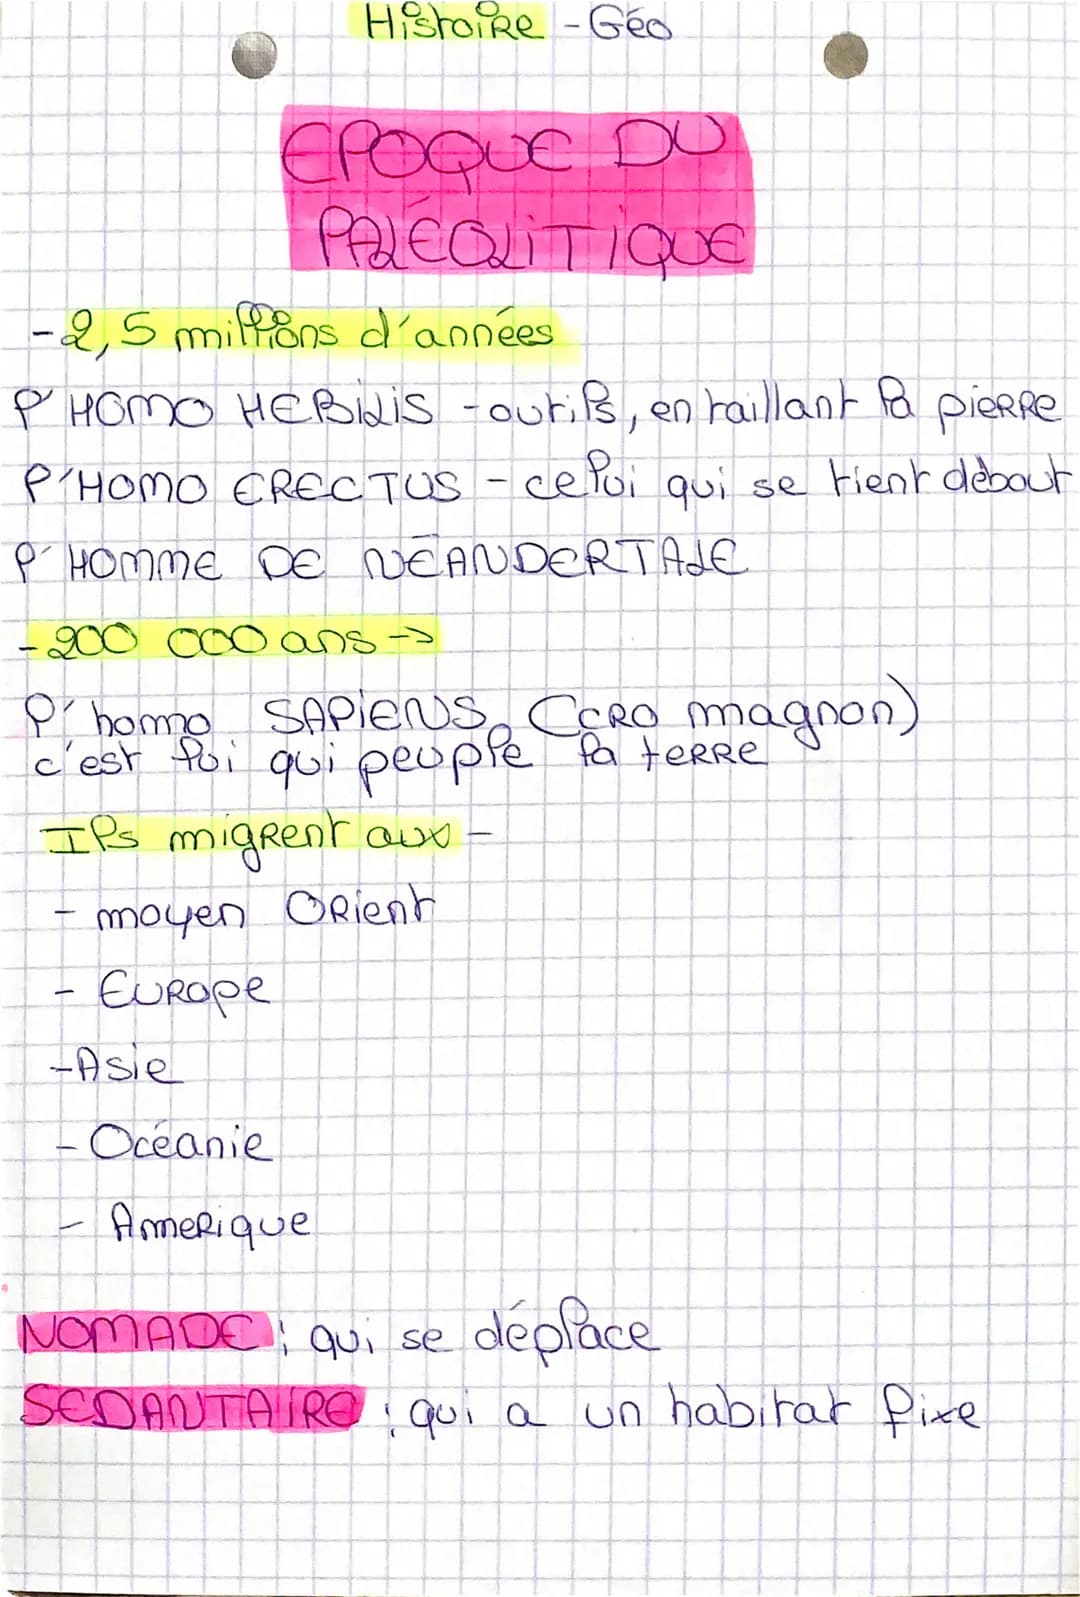 Histoire - Géo
EPOQUE DU
PALÉOLITIQUE
-2,5 millions d'années
l'HOMO HEBILIS - outils, en taillant la pierre
l'HOMO ERECTUS - celui qui se tient debout
l'HOMME DE NÉANDERTALE
-200 000 ans ->
l'homo SAPIENS (CRO magnon)
c'est lui qui peuple la terre
Ils migrent aux -
- moyen Orient
- Europe
-Asie
- Océanie
- Amerique
NOMADE : qui se déplace
SEDANTAIRE : qui a un habitat fixe